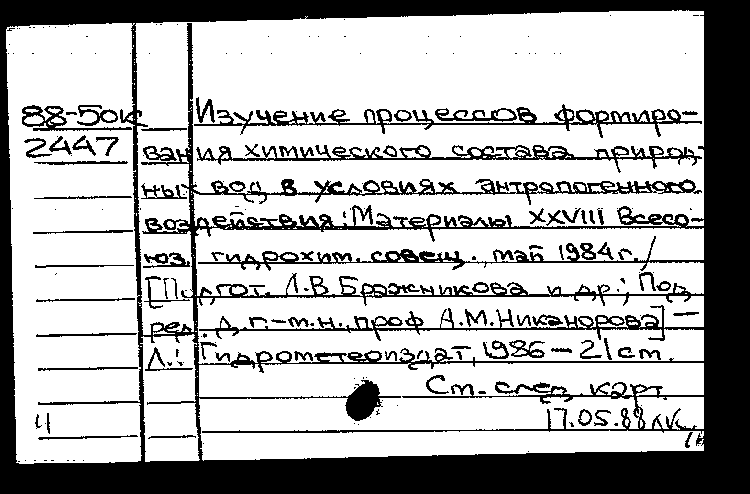 88-50к Изучение процессов формиро-
2447 вания химического состава природ-
ных вод в условиях антропогенного
воздействия: Материалы XXVIII Всесо-
юз. гидрохим. совещ., май 1984 г. /
[Подгот. Л.В. Бражникова и др.; Под
ред. д. г.-м. н., проф А.М. Никанорова] —
Л.: Гидрометеоиздат, 1986 — 21 см.
Ст. след. карт.
17.05.88